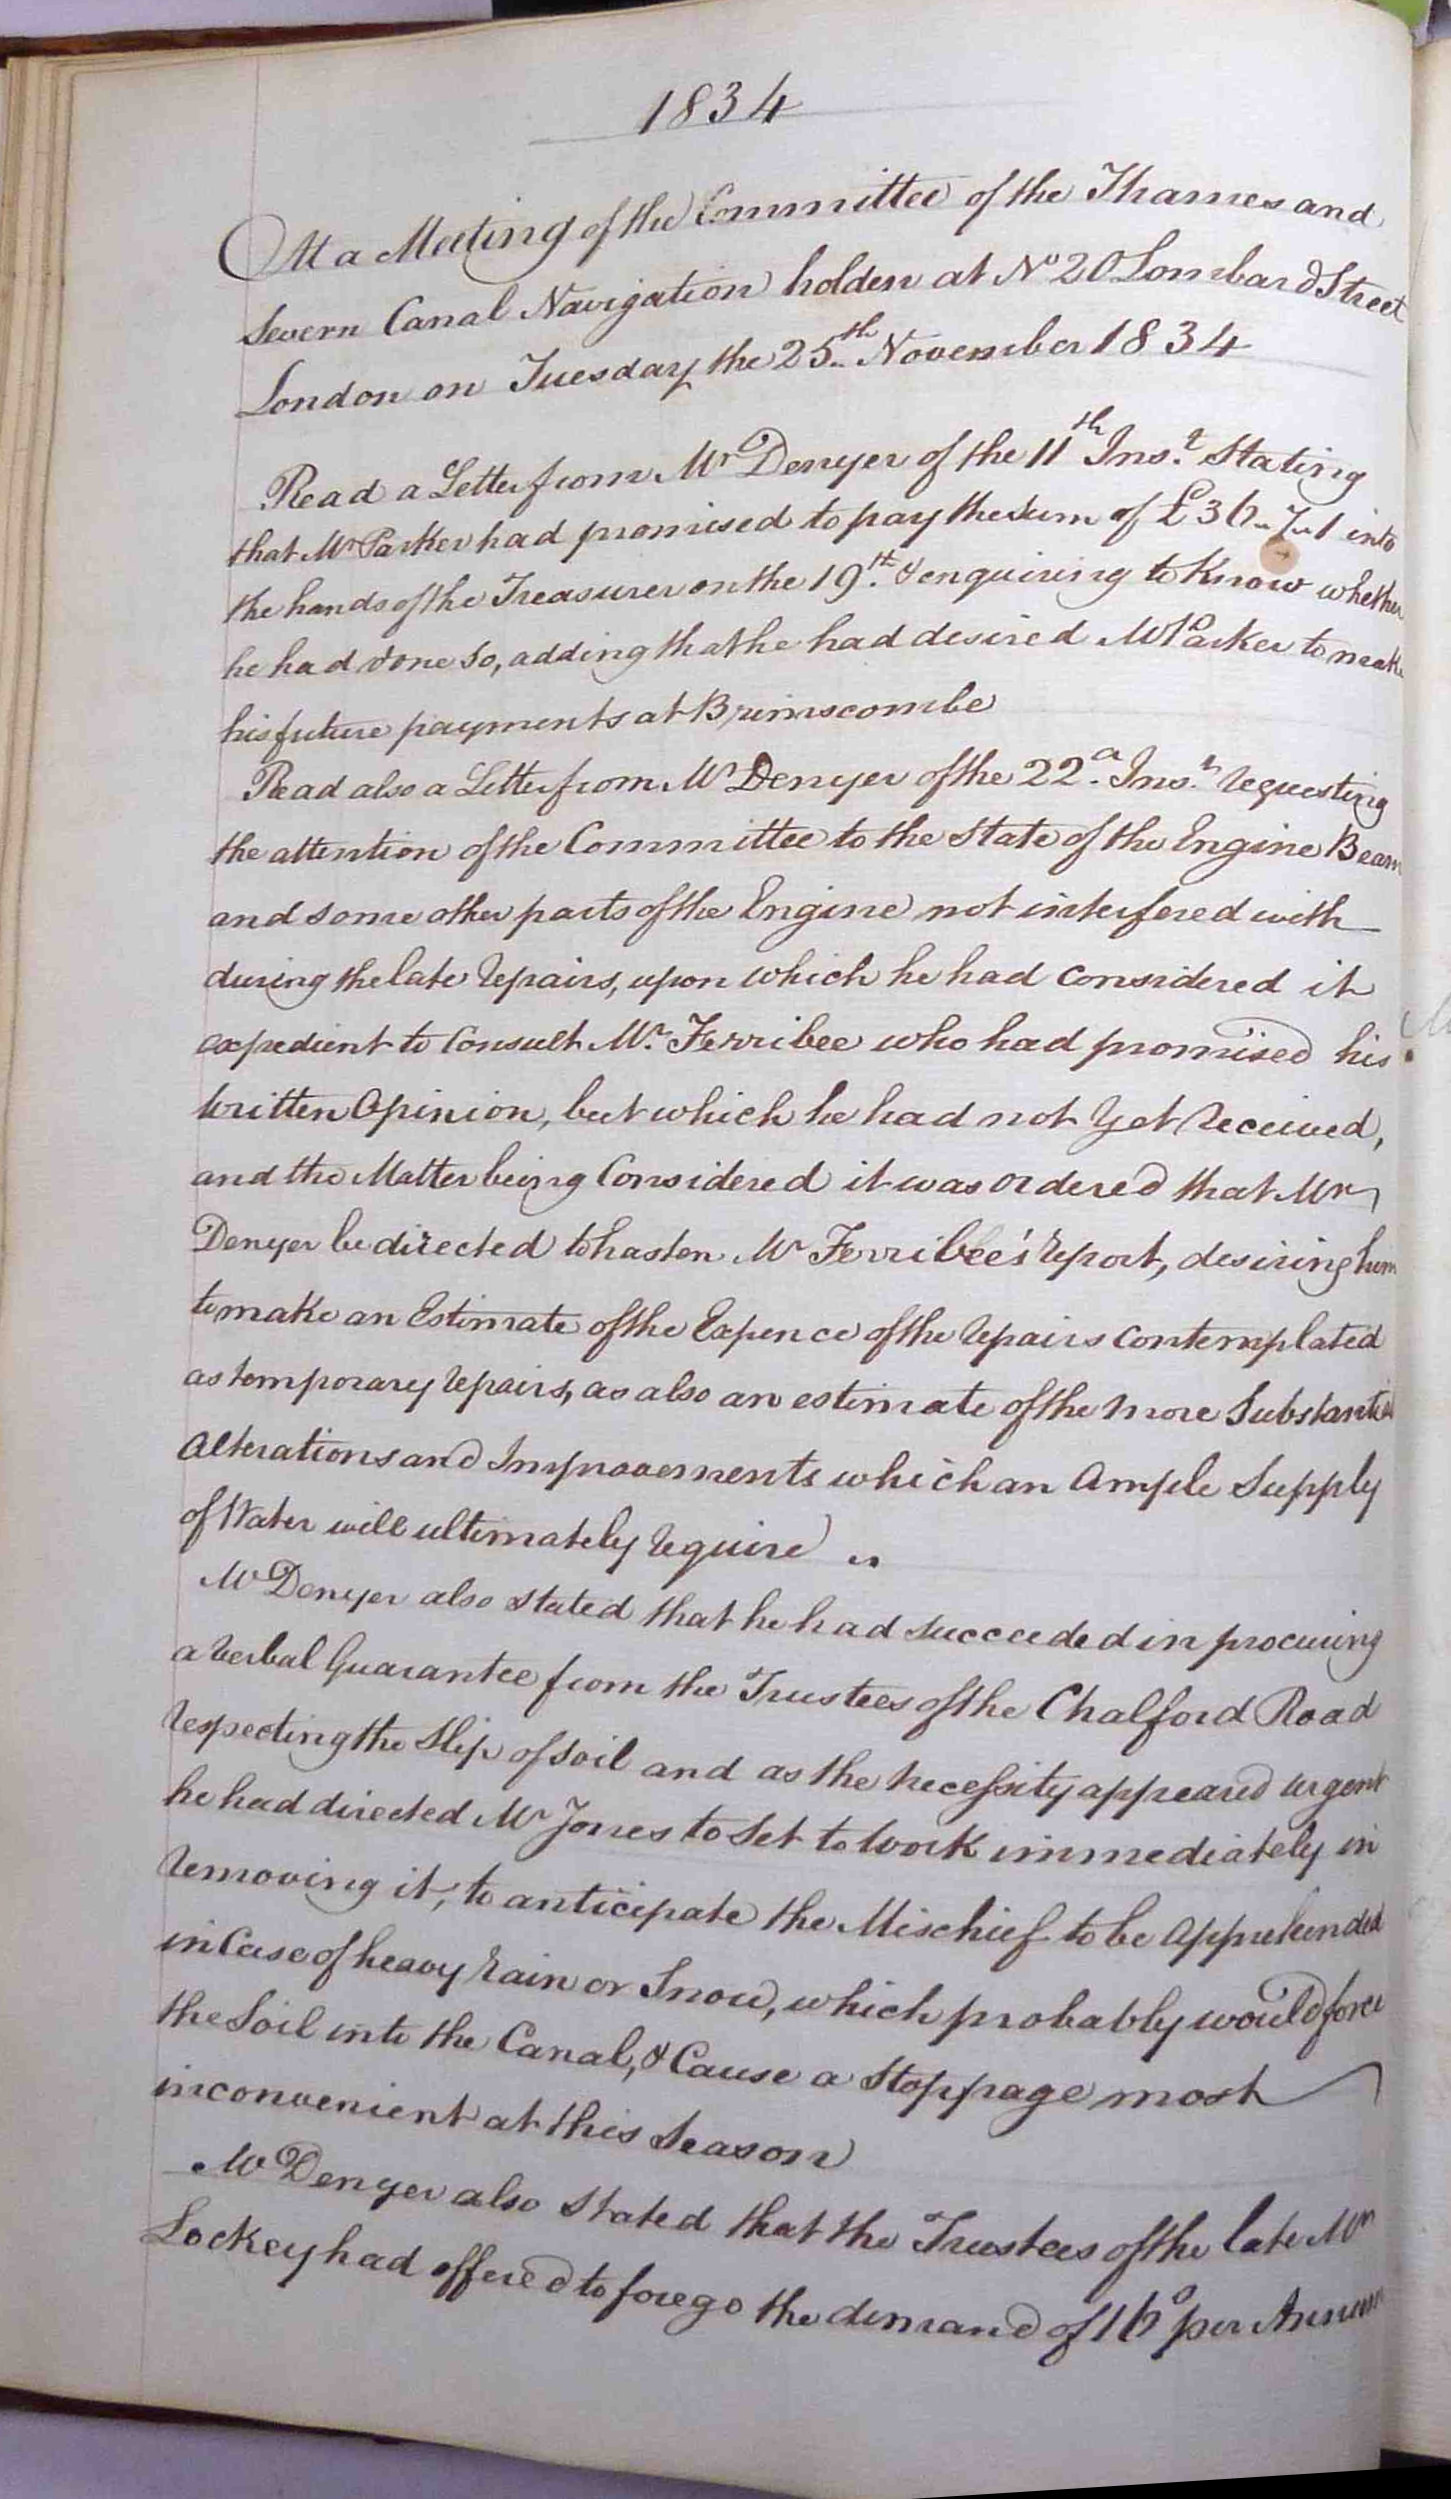 1834
At a Meeting of the Committee of the Thames and
Severn Canal Navigation holden at No 20 Lombard Street
London on Tuesday the 25th November 1834
Read a Letter from Mr Denyer of the 11th Inst Stating
that Mr Parker had promised to pay the Sum of £36-7-1 into
the hands of the Treasurer on the 19th & enquiring to Know whether
he had done so, adding that he had desired Mr Parker to make
his future payments at Brimscombe
Read also a Letter from Mr Denyer of the 22d Inst requesting
the attention of the Committee to the State of the Engine Beam
and some other parts of the Engine not interfered with
during the late repairs, upon which he had Considered it
expedient to Consult Mr Ferribee who had promised his
written Opinion, but which he had not Yet received,
and the Matter being Considered it was ordered that Mr
Denyer be directed to hasten Mr Ferribee's report, desiring him
to make an Estimate of the Expence of the repairs Contemplated
as temporary repairs, as also an estimate of the more Substantial
Alterations and Improvements which an Ample Supply
of Water will ultimately require
Mr Denyer also stated that he had succeeded in procuring
a Verbal Guarantee from the Trustees of the Chalford Road
respecting the Slip of Soil and as the necessity appeared urgent
he had directed Mr Jones to Set to Work immediately in
removing it, to anticipate the Mischief to be Apprehended
in Case of heavy rain or Snow, which probably would force
the Soil into the Canal, & Cause a Stoppage most
inconvenient at this Season
Mr Denyer also Stated that the Trustees of the late Mr
Lockey had offered to forego the demand of 16s per Annum